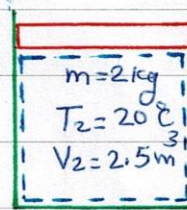 m=2kg
T₂=20°C
V₂=2.5m³